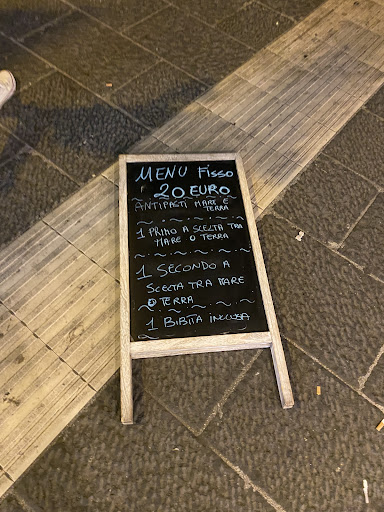 MENU Fisso
20 EURO
ANTIPASTI MARE E
TERRA
1 PRIMO A SCELTA TRA
MARE O TERRA
1 SECONDO A
SCELTA TRA MARE
O TERRA
1 BIBITA INCLUSA